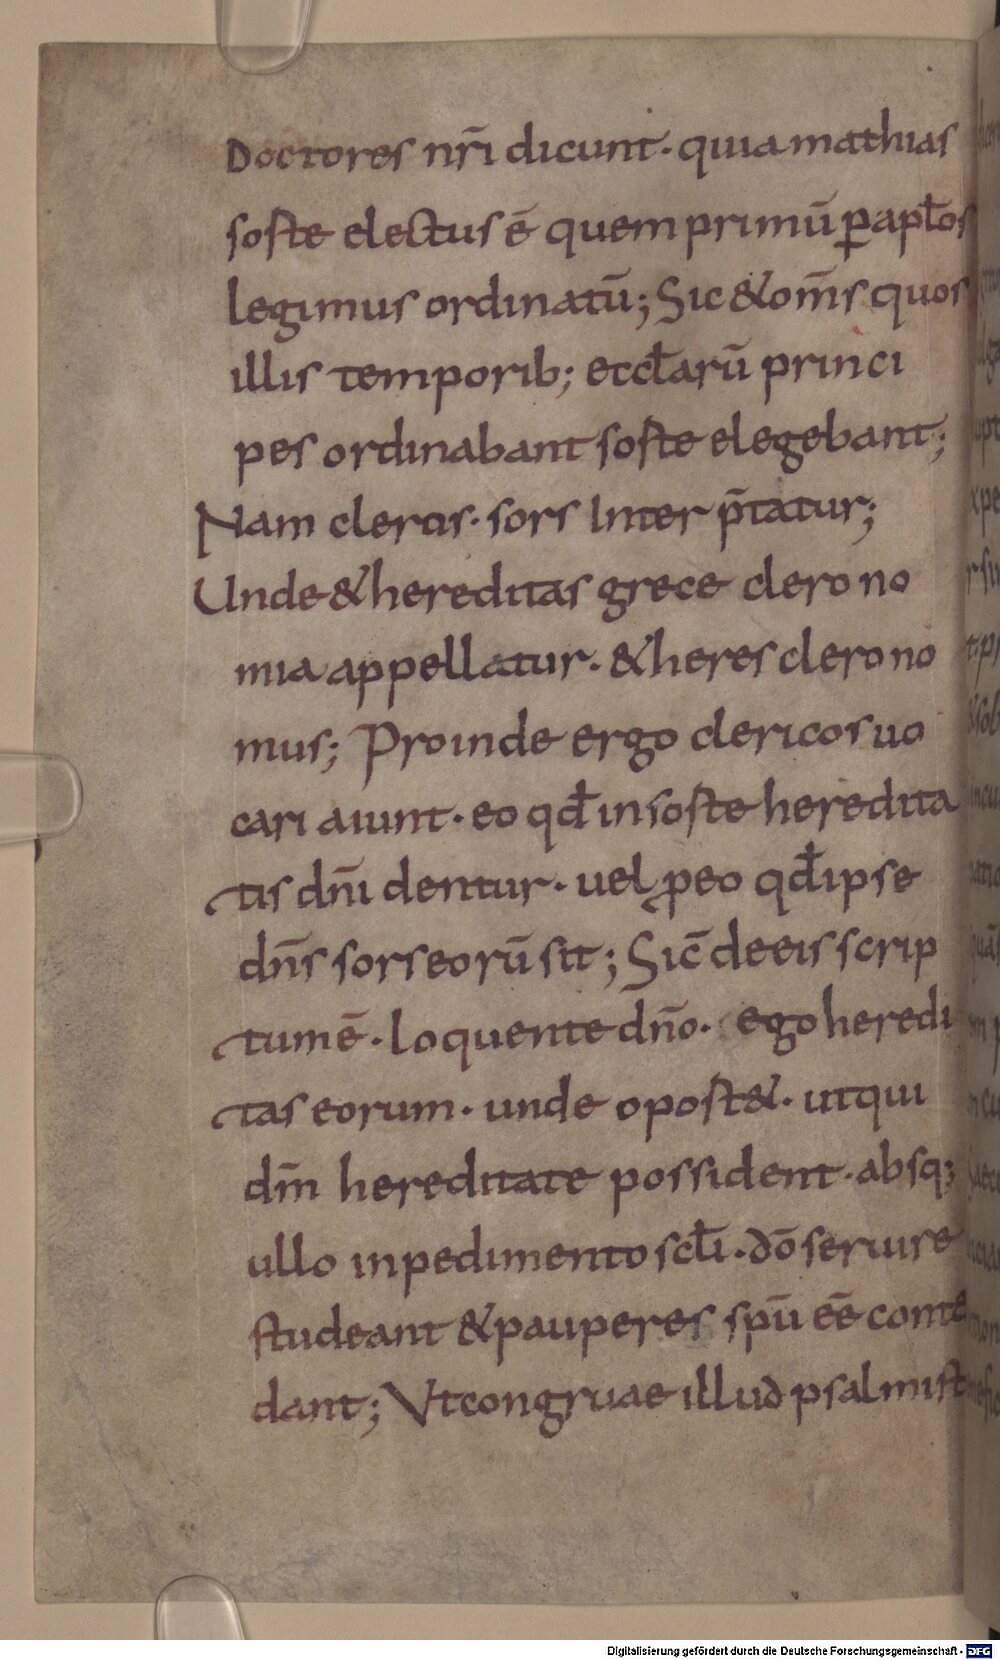 Doctores nr̄i dicunt· quia mathias
sorte electus ē quem primū ꝑ apłos
legimus ordinatū; Sic & om̄s quos
illis temporib; eccłarū princi
pes ordinabant sorte elegebant;
Nam cleros· sors Inter p̄tatur;
Unde & hereditas grece clero no
mia appellatur· & heres clero no
mus; Proinde ergo clericos uo
cari aiunt· eo qđ in sorte heredita
tis dn̄i dentur· uel ꝓ eo qđ ipse
dn̄s sors eorū sit; Sic̄ de eis scrip
tum ē· loquente dn̄o· ego heredi
tas eorum· unde oport&· ut qui
dm̄ hereditate possident· absq;
ullo inpedimento scłi· dō seruire
studeant & pauperes spū eē conte
dant; Vt congruae illud psalmist
Digitalisierung gefördert durch die Deutsche Forschungsgemeinschaft - DFG